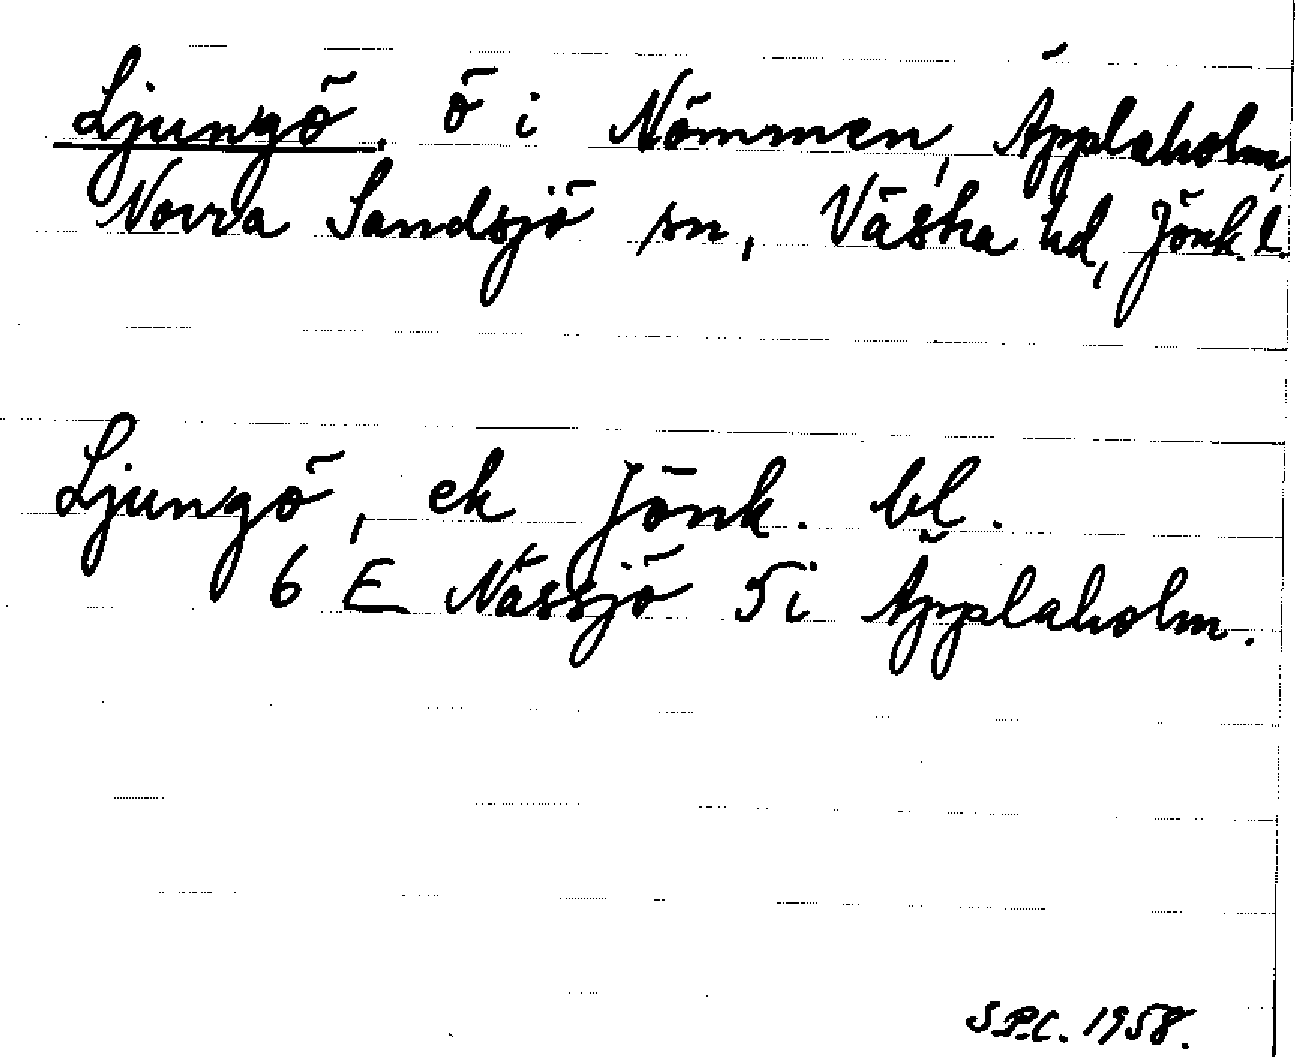 Ljungö. ö i Nömmen, Äpplaholm,
Norra Sandsjö sn, Västra hd, Jönk. l.
Ljungö, ek Jönk. bl.
6 E Nässjö 5i Äpplaholm.
S.P.C. 1958.